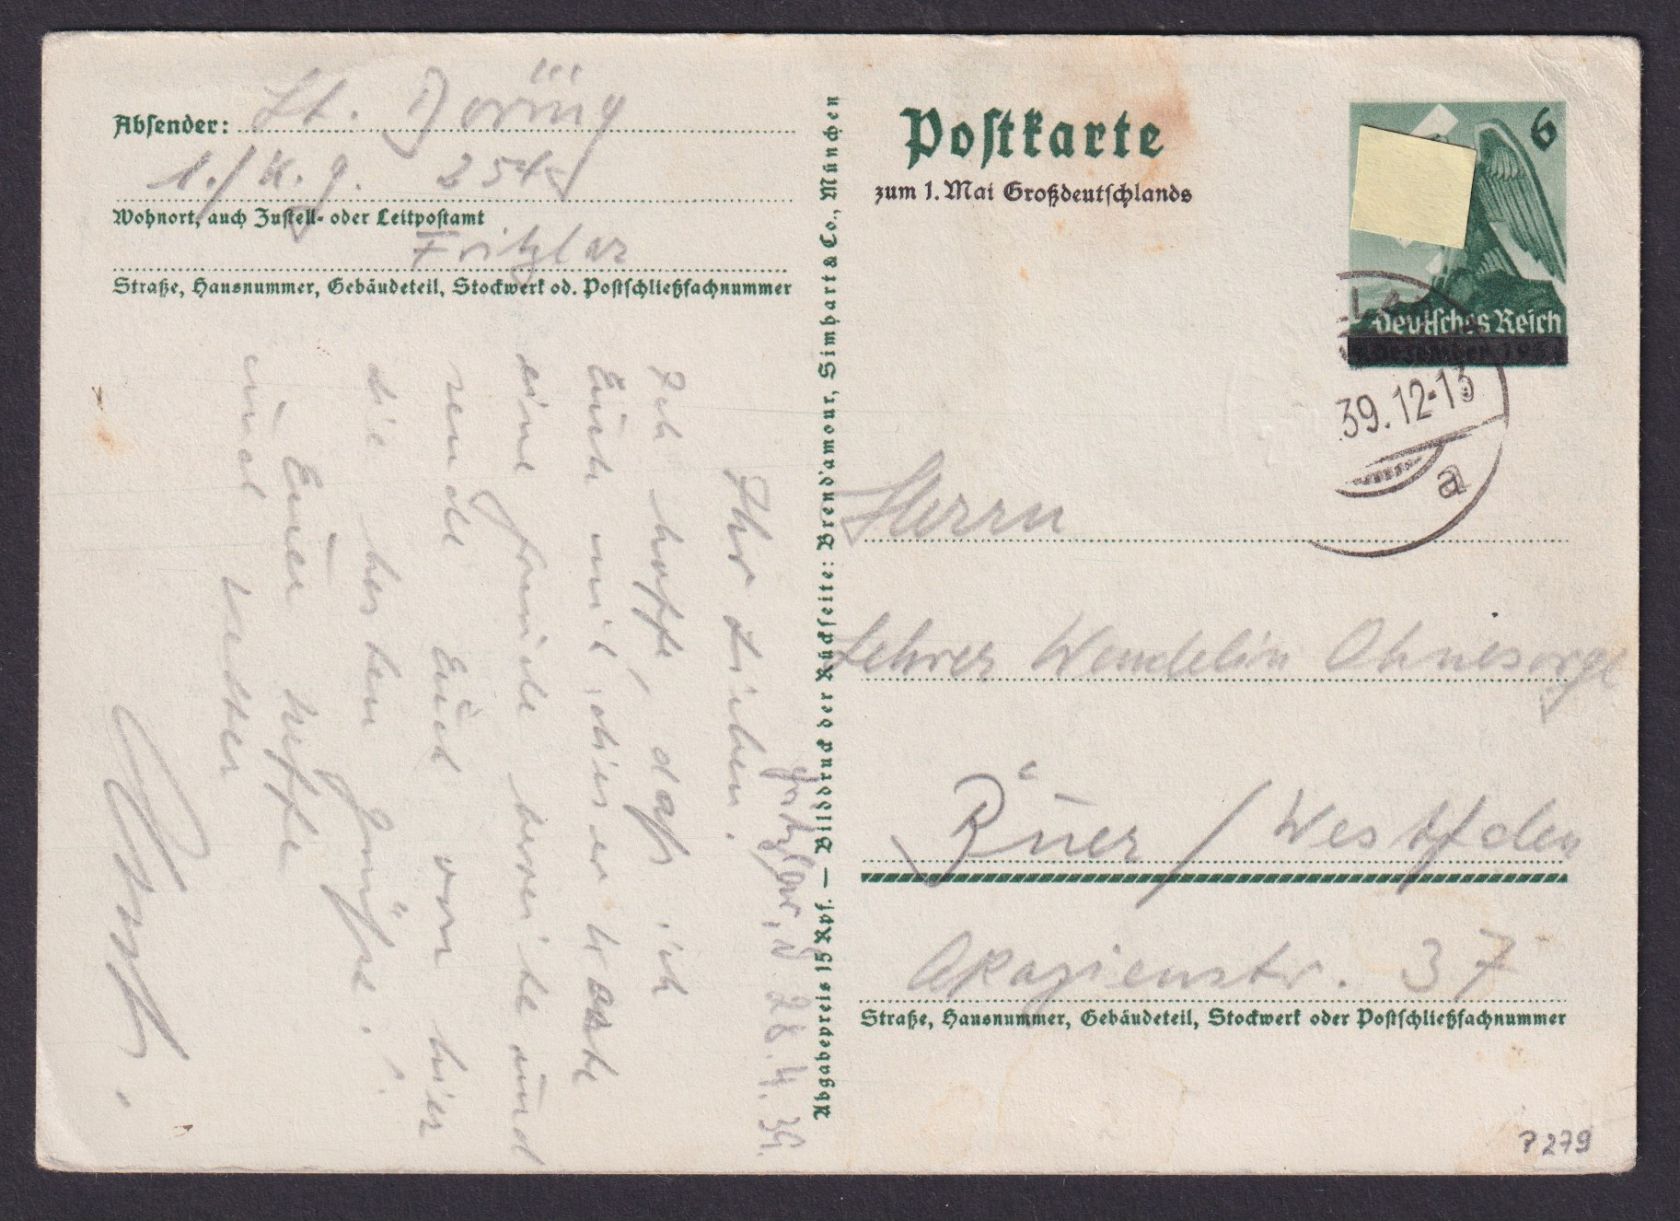 Absender: Lt. Döring
1./K.g. 254
Wohnort, auch Zustell- oder Leitpostamt
Fritzlar
Straße, Hausnummer, Gebäudeteil, Stockwerk od. Postschließfachnummer
Fritzlar, d. 28.4.39.
Ihr Lieben.
Ich hoffe, daß ich
Euch mit dieser Karte
eine Freude bereite und
sende Euch von hier
die besten Grüße!
Euer Neffe
und Vetter
Abgabepreis 15 Rpf. — Bilddruck der Rückseite: Brend'amour, Simhart & Co., München
Postkarte
zum 1. Mai Großdeutschlands
6
Deutsches Reich
39.12-13
a
Herrn
Lehrer Wendelin Ohnesorge
Büer / Westfalen
Akazienstr. 37
Straße, Hausnummer, Gebäudeteil, Stockwerk oder Postschließfachnummer
P 279